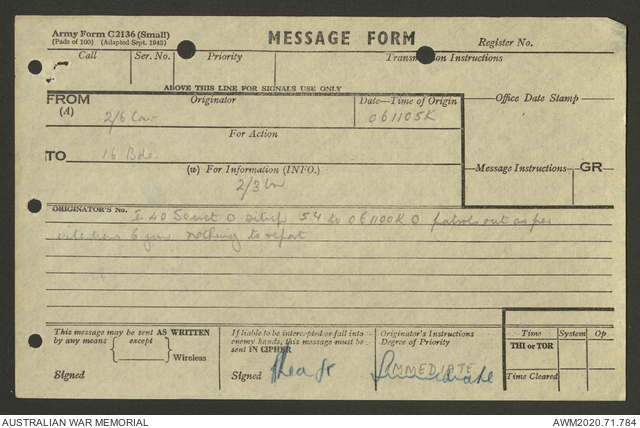 Army Form C2136 (Small)
(Pads of 100) (Adapted Sept. 1942)
MESSAGE FORM
Register No.
Call Ser. No. Priority Instructions
ABOVE THIS LINE FOR SIGNALS USE ONLY
FROM
(A)
Originator
Date—Time of Origin
Office Date Stamp
2/6 Cav
061105K
For Action
TO
16 Bde.
(w) For Information (INFO.)
Message Instructions
GR
2/3
ORIGINATOR'S No.
I 40 Secret O sitrep 54 to 061100K O patrols out as per
intentions 6 jun nothing to report
This message may be sent AS WRITTEN
by any means except
Wireless
Signed
If liable to be intercepted or fall into
enemy hands, this message must be
sent IN CIPHER
Signed
Originator's Instructions
Degree of Priority
IMMEDIATE
Immediate
Time System Op
THI or TOR
Time Cleared
AUSTRALIAN WAR MEMORIAL
AWM2020.71.784